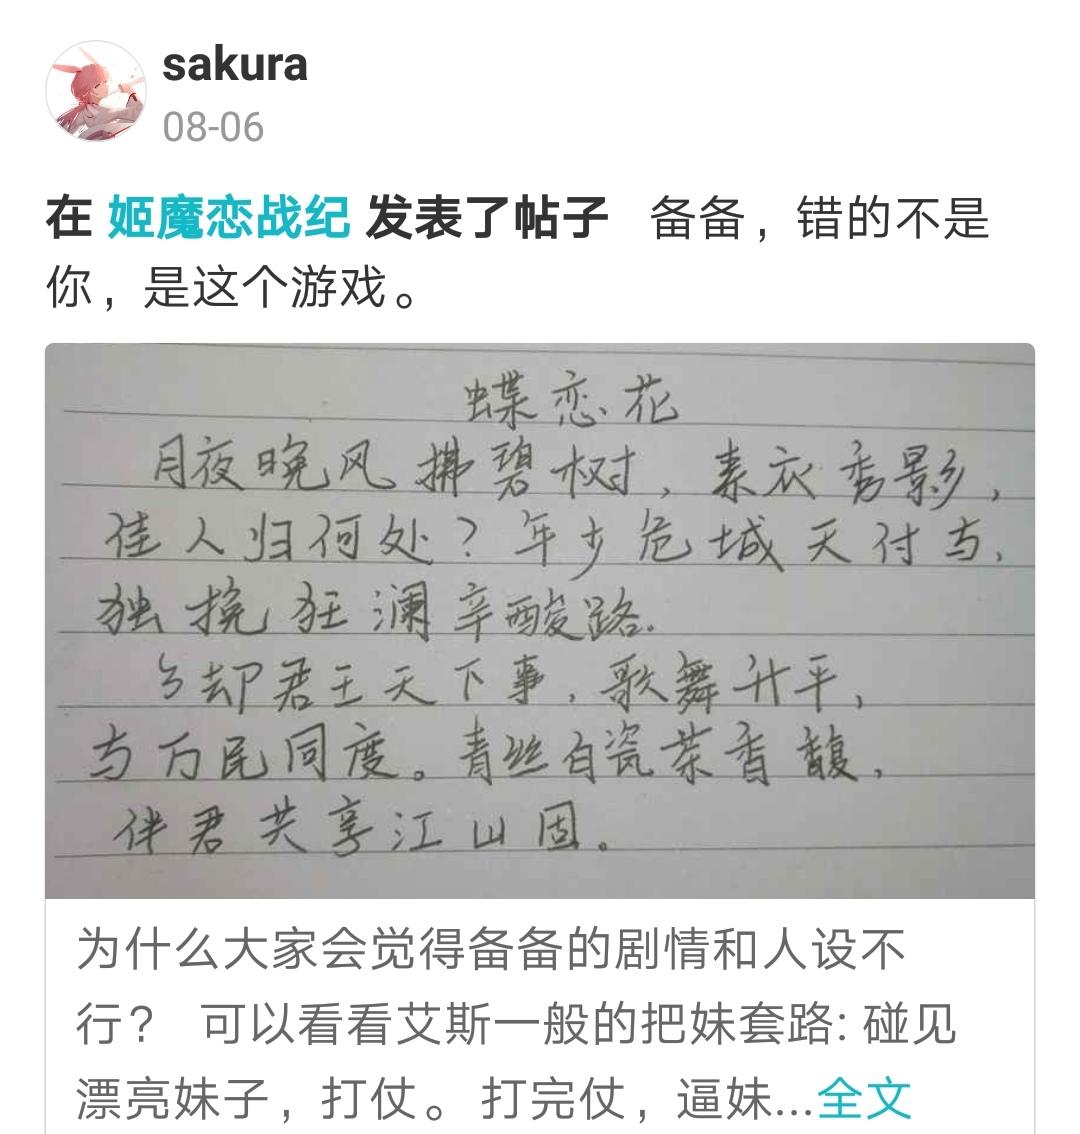 sakura
08-06
在 姬魔恋战纪 发表了帖子 备备，错的不是
你，是这个游戏。
蝶恋花
月夜晚风拂碧树，素衣秀影，
佳人归何处？年少危城天付与，
独挽狂澜辛酸路。
了却君王天下事，歌舞升平，
与万民同度。青丝白瓷茶香馥，
伴君共享江山固。
为什么大家会觉得备备的剧情和人设不
行？ 可以看看艾斯一般的把妹套路: 碰见
漂亮妹子，打仗。打完仗，逼妹...全文